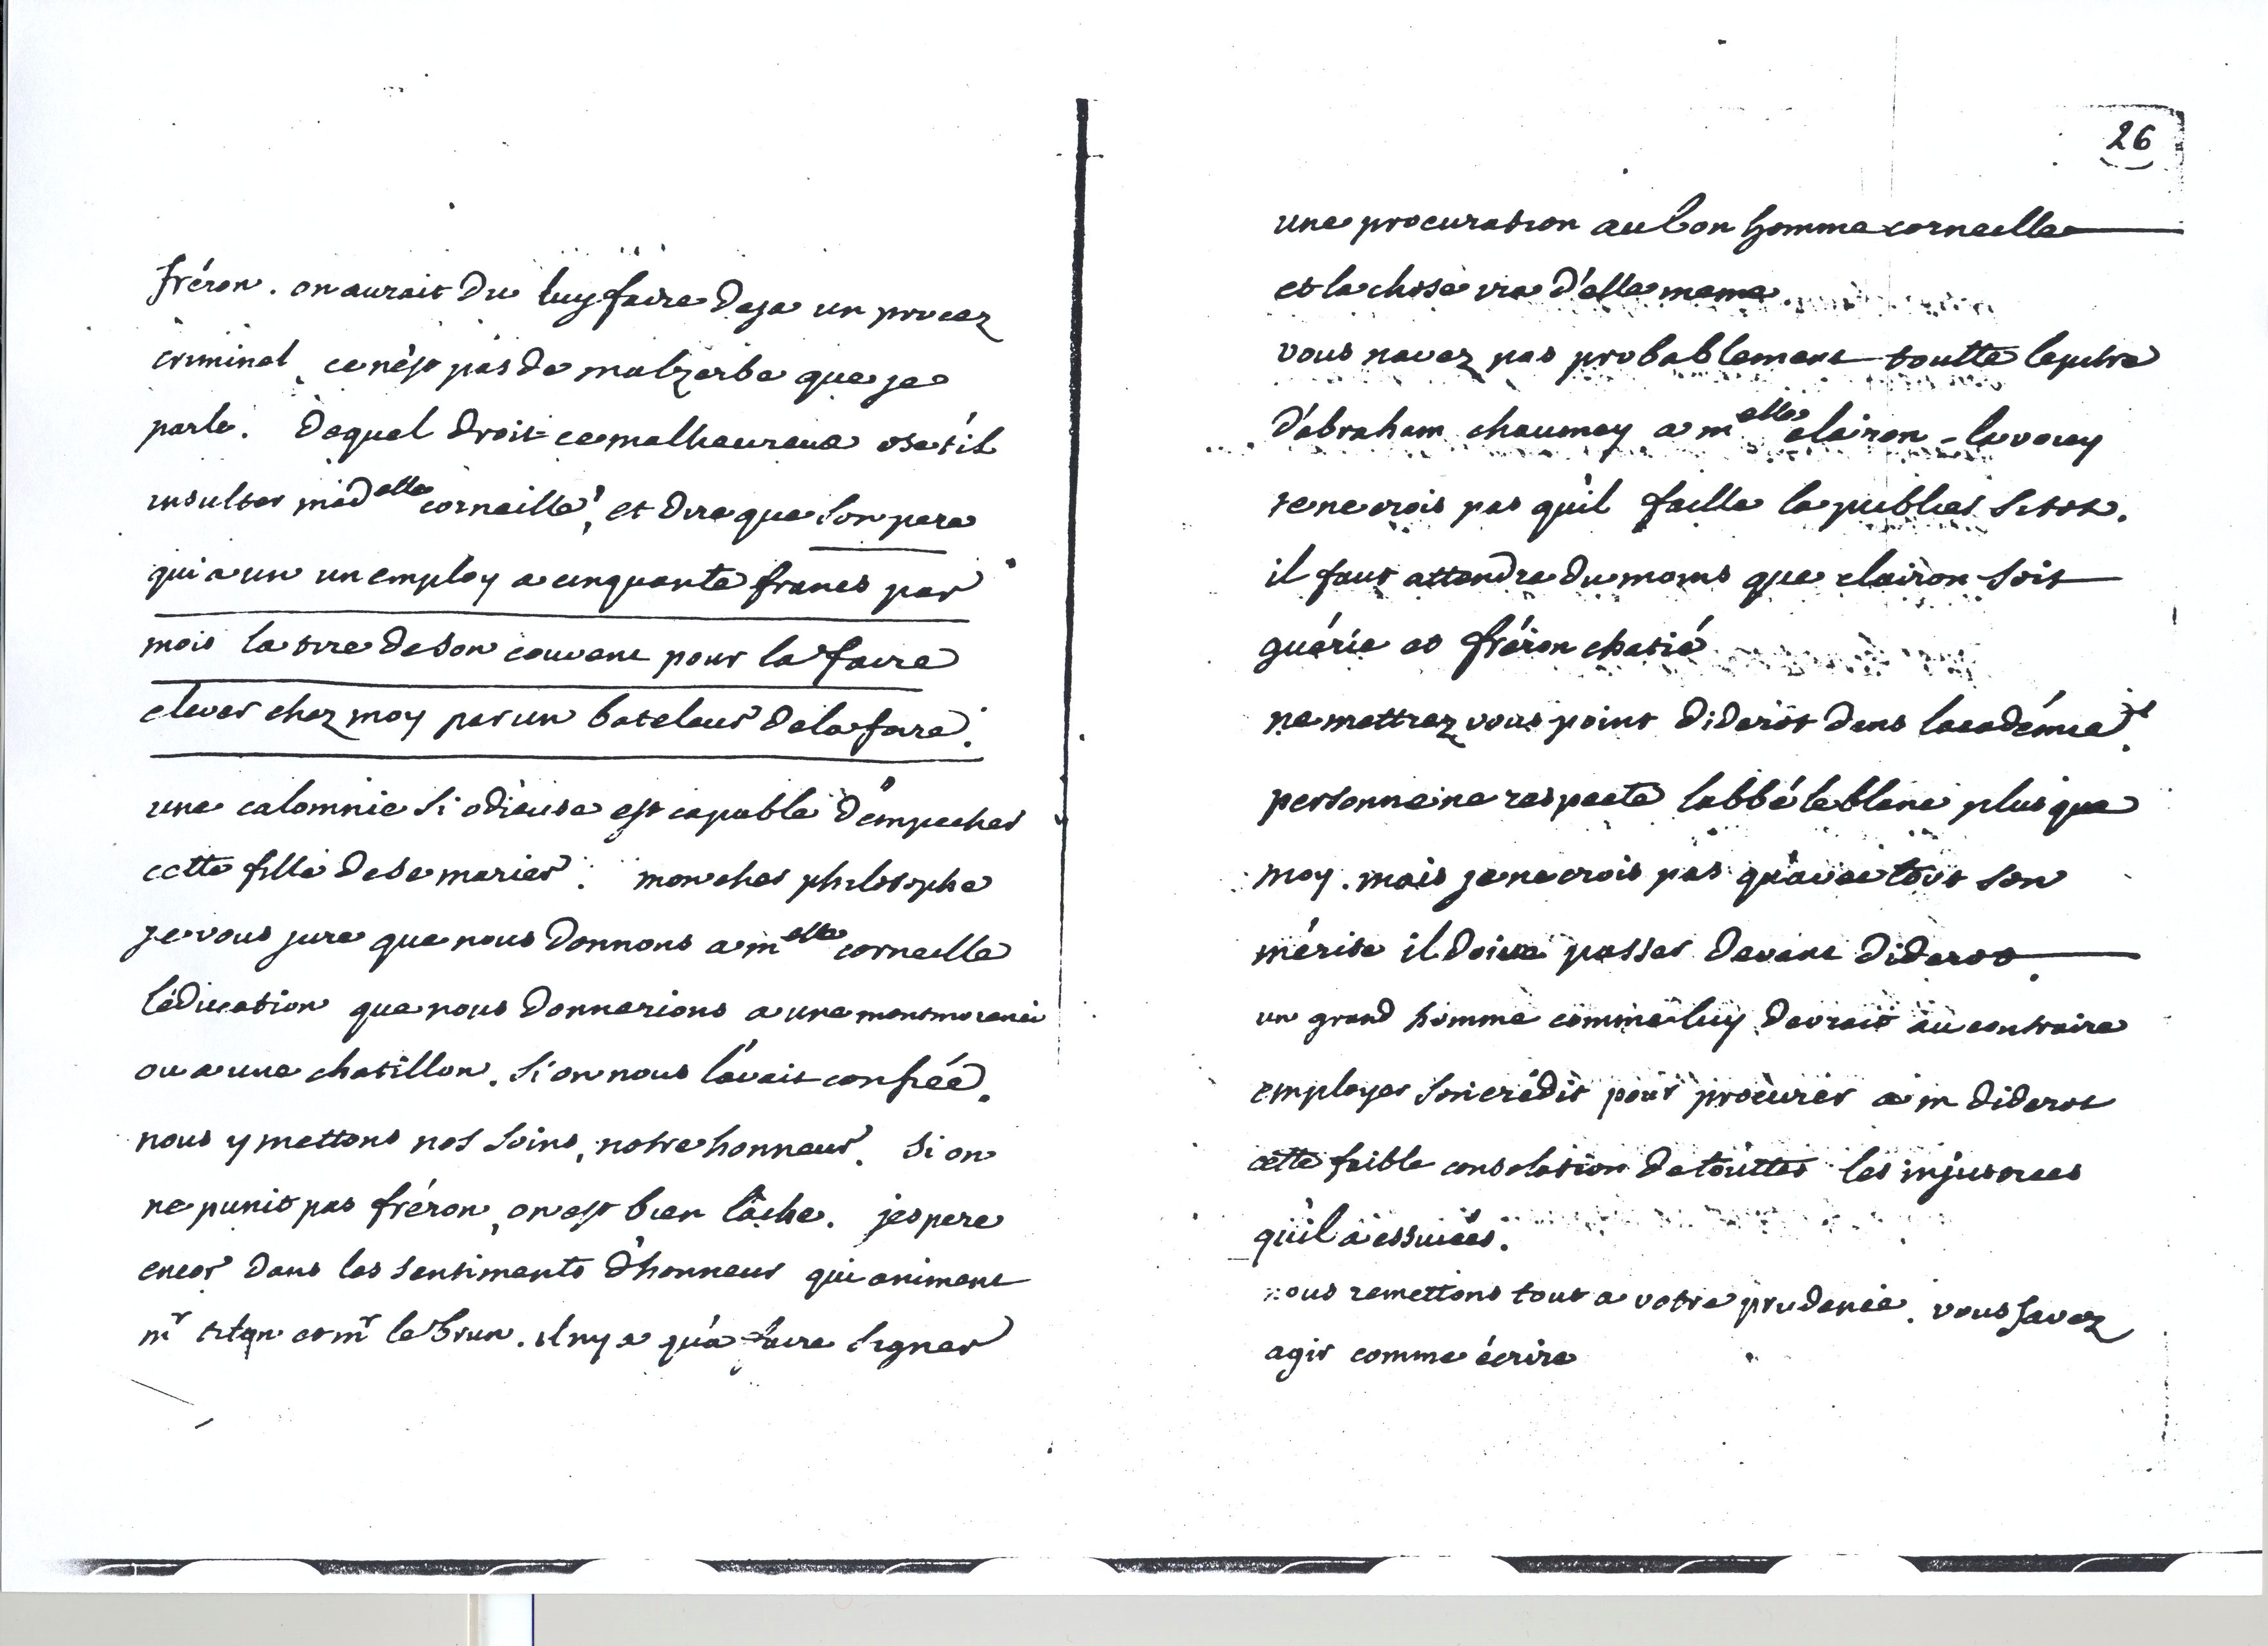 fréron. on aurait du luy faire deja un procez
criminel, ce n'est pas de malzerbe que je
parle. de quel droit ce malheureux ose t'il
insulter mad<sup>elle</sup> corneille, et dire que son pere
qui a un un employ a cinquante francs par
mois la tire de son couvent pour la faire
elever chez moy par un bateleur de la foire.
une calomnie si odieuse est capable d'empecher
cette fille de se marier. mon cher philosophe
je vous jure que nous donnons a m<sup>elle</sup> corneille
l'éducation que nous donnerions a une montmorenci
ou a une chatillon. si on nous l'avait confiée.
nous y mettons nos soins, notre honneur. si on
ne punit pas fréron, on est bien lâche. j'espere
encor dans les sentiments d'honneur qui animent
m<sup>r</sup> titon et m<sup>r</sup> le brun. il ny a qu'a faire signer
26
une procuration au bon homme corneille
et la chose ira d'elle meme.
vous navez pas probablement toutte lepitre
d'abraham chaumey a m<sup>elle</sup> clairon - la voicy
je ne crois pas qu'il faille la publier sitot.
il faut attendre du moins que clairon soit
guérie et fréron chatié
ne mettrez vous point diderot dans lacadémie?
personne ne respecte labbé le blanc plus que
moy. mais je ne crois pas qu'avec tout son
mérite il doive passer devant diderot.
un grand homme comme luy devrait au contraire
employer son crédit pour procurer a m diderot
cette faible consolation de touttes les injustices
qu'il a essuiées.
nous remettons tout a votre prudence. vous savez
agir comme écrire